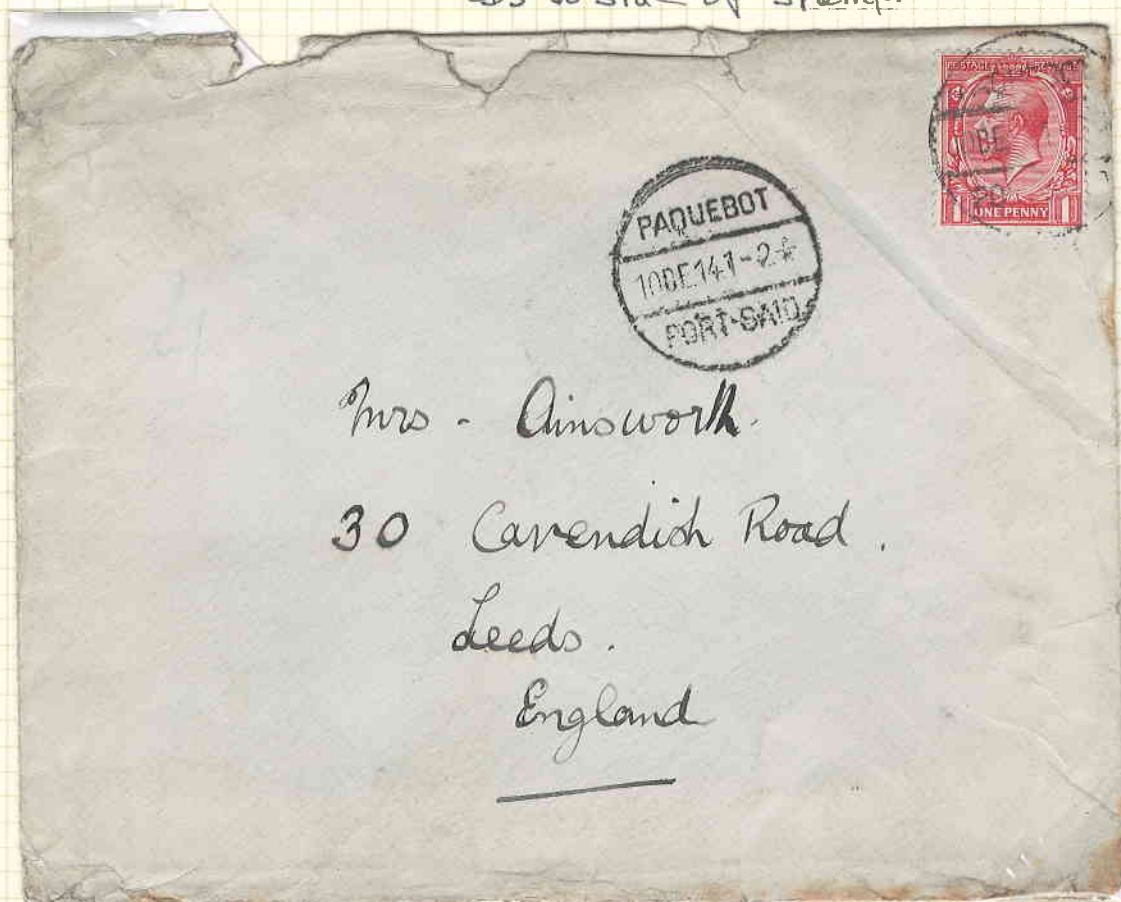 of
POSTAGE REVENUE
10DE
1 ONE PENNY 1
PAQUEBOT
10DE141-2
PORT-SAID
Mrs - Ainsworth.
30 Cavendish Road.
Leeds.
England